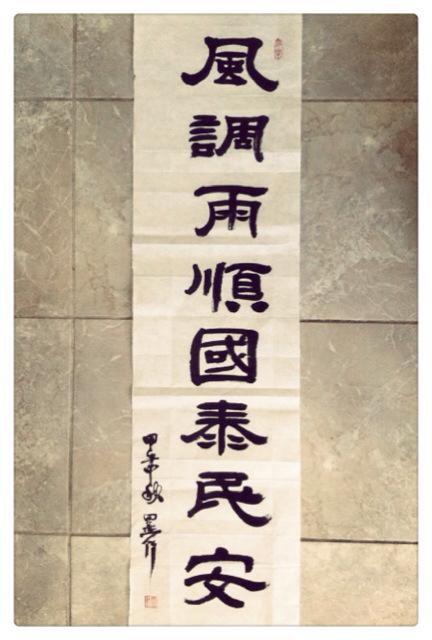 風調雨順國泰民安
甲午秋